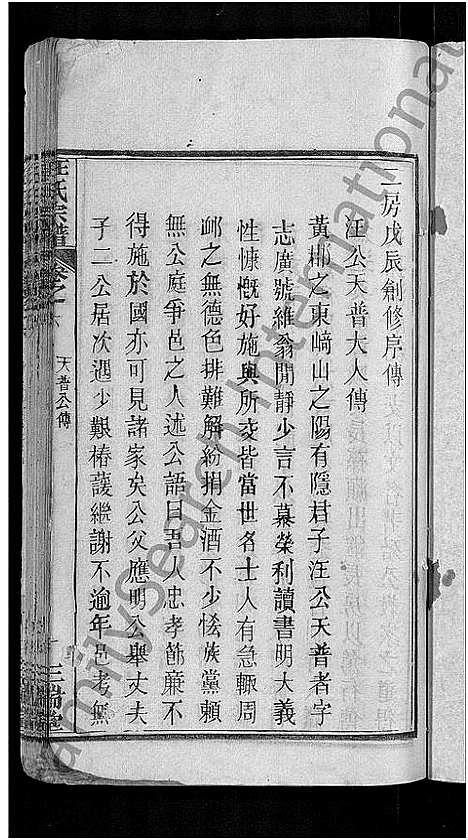 二房戊辰創修序傳
汪公天普大人傳
黃郴之東﨑山之陽有隱君子汪公天普者字
志廣號維翁閒靜少言不慕榮利讀書明大義
性慷慨好施與所交皆當世名士人有急輒周
䘏之無德色排難解紛捐金酒不少悋族黨賴
無公庭爭邑之人述公語曰吾人忠孝節廉不
得施於國亦可見諸家矣公父應明公舉丈夫
子二公居次遇少艱椿萲繼謝不逾年邑考無
汪氏宗譜 卷之一 天普公傳 三瑞堂
FamilySearch International